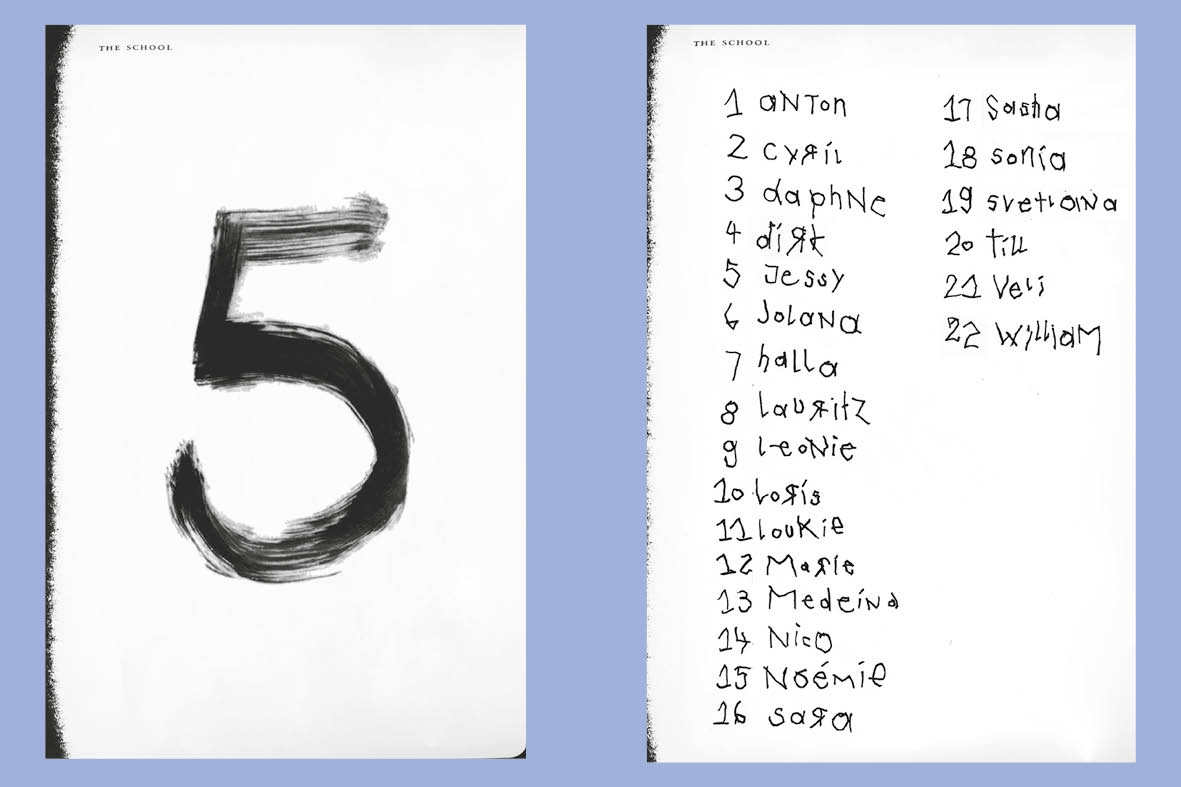 THE SCHOOL
5
THE SCHOOL
1 aNTon
2 cyRil
3 daphNe
4 diRk
5 Jessy
6 JolaNa
7 halla
8 lauRitz
9 leoNie
10 loRis
11 louKie
12 MaRie
13 MedeiNa
14 Nico
15 Noémie
16 saRa
17 Sasha
18 sonia
19 svetlaNa
20 till
21 Veli
22 WilliaM